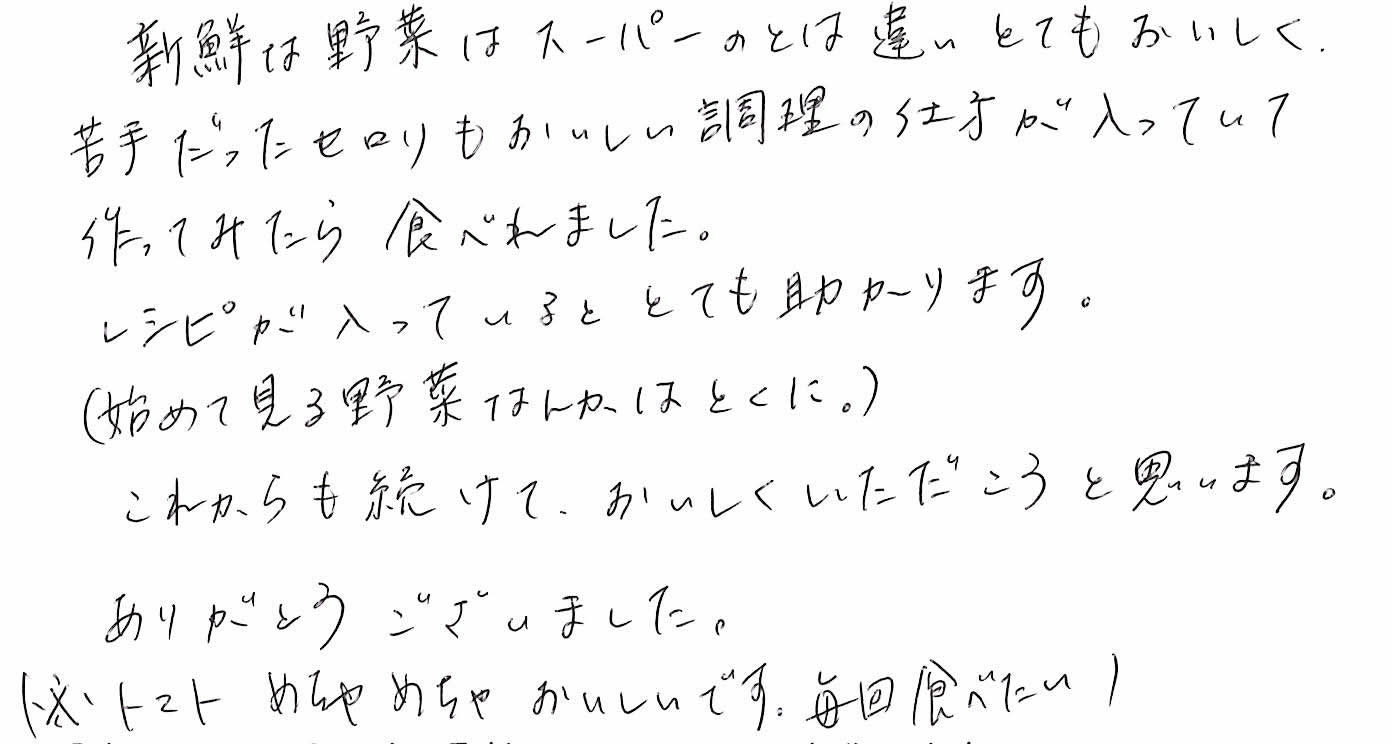 新鮮な野菜はスーパーのとは違いとてもおいしく、
苦手だったセロリもおいしい調理の仕方が入っていて
作ってみたら食べれました。
レシピが入っているととても助かります。
(始めて見る野菜なんかはとくに。)
これからも続けて、おいしくいただこうと思います。
ありがとうございました。
(※トマト めちゃめちゃ おいしいです。毎回食べたい)